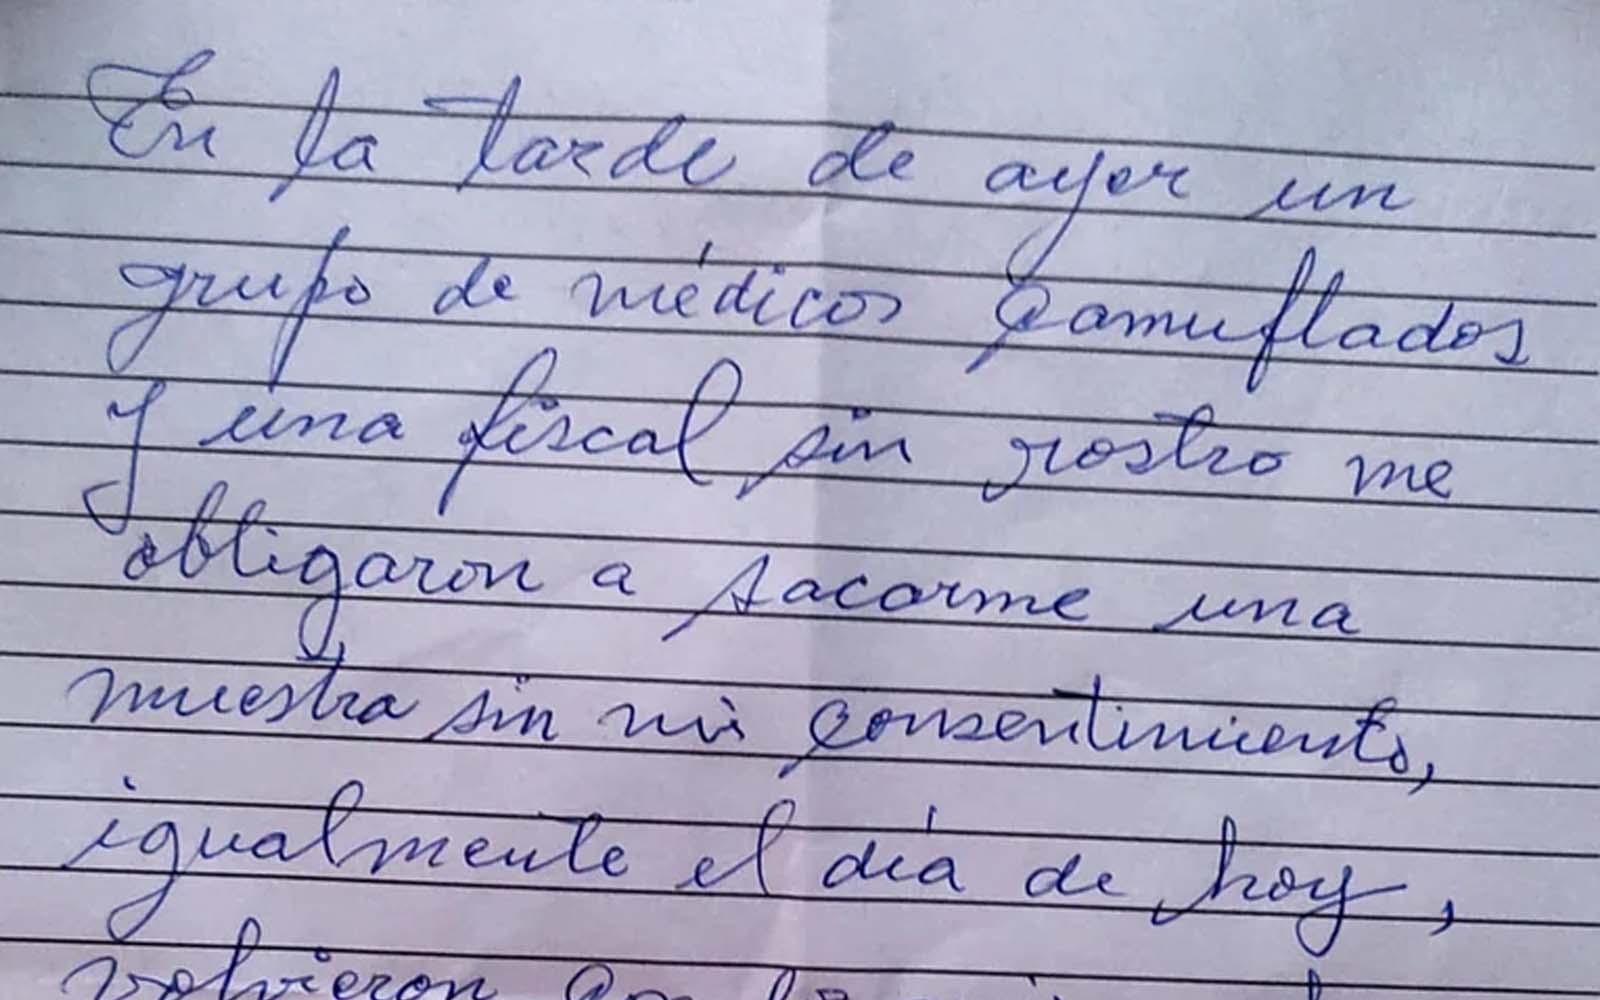 En la tarde de ayer un
grupo de médicos camuflados
y una fiscal sin rostro me
obligaron a sacarme una
muestra sin mi consentimiento,
igualmente el día de hoy,
volvieron con la